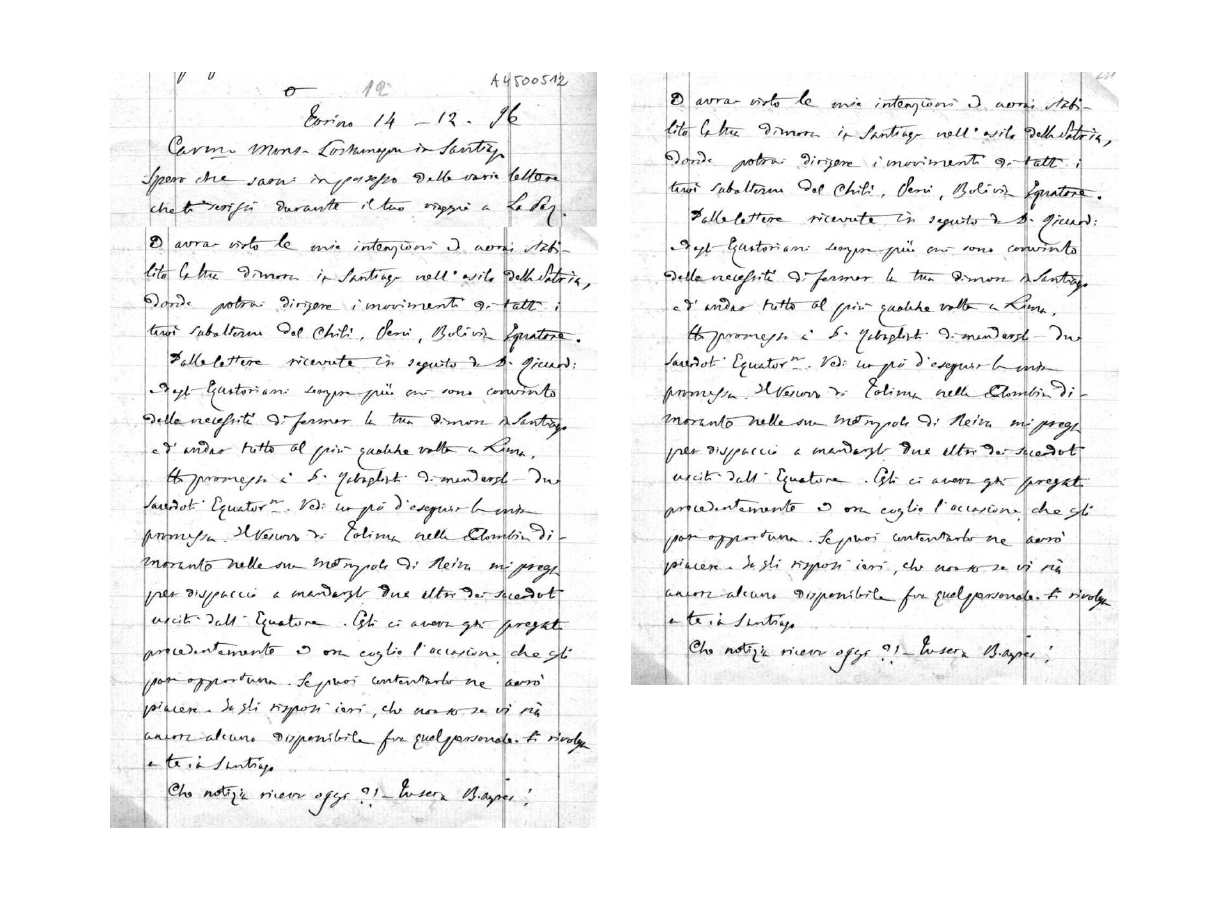 12
A4500512
Torino 14 - 12 - 96
Car.mo Mons. Costamagna in Santiago
Spero che sarai in possesso delle varie lettere
che ti scrissi durante il tuo viaggio a La Paz.
D avrai visto le mie intenzioni d averti stabi-
lito la tua dimora in Santiago nell'asilo della Patria,
donde potrai dirigere i movimenti di tutti i
tuoi subalterni del Chilì, Perù, Bolivia Equatore.
Dalle lettere ricevute in seguito da D. Riccardi
degli Equatoriani sempre più mi sono convinto
della necessità di fermar la tua dimora in Santiago
e d'andar tutto al più qualche volta a Lima.
Ho promesso a D. Rabagliati di mandargli due
sacerdoti Equator.ni. Vedi un po' d'eseguir la mia
promessa. Il Vescovo di Tolima nella Colombia di-
morante nella sua metropoli di Neiva mi prega
per dispaccio a mandargli due altri dei sacerdoti
usciti dall'Equatore. Egli ci aveva già pregati
precedentemente ed ora coglie l'occasione che gli
par opportuna. Se puoi contentarlo ne avrò
piacere. Io gli risposi ieri, che non so se vi sia
ancora alcuno disponibile fra quel personale. Si rivolga
a te in Santiago
Che notizia ricevo oggi ?! - Tu sera B. ayres!
D avrai visto le mie intenzioni d averti stabi-
lito la tua dimora in Santiago nell'asilo della Patria,
donde potrai dirigere i movimenti di tutti i
tuoi subalterni del Chilì, Perù, Bolivia Equatore.
Dalle lettere ricevute in seguito da D. Riccardi
degli Equatoriani sempre più mi sono convinto
della necessità di fermar la tua dimora in Santiago
e d'andar tutto al più qualche volta a Lima.
Ho promesso a D. Rabagliati di mandargli due
sacerdoti Equator.ni. Vedi un po' d'eseguir la mia
promessa. Il Vescovo di Tolima nella Colombia di-
morante nella sua metropoli di Neiva mi prega
per dispaccio a mandargli due altri dei sacerdoti
usciti dall'Equatore. Egli ci aveva già pregati
precedentemente ed ora coglie l'occasione che gli
par opportuna. Se puoi contentarlo ne avrò
piacere. Io gli risposi ieri, che non so se vi sia
ancora alcuno disponibile fra quel personale. Si rivolga
a te in Santiago
Che notizia ricevo oggi ?! - Tu sera B. ayres!